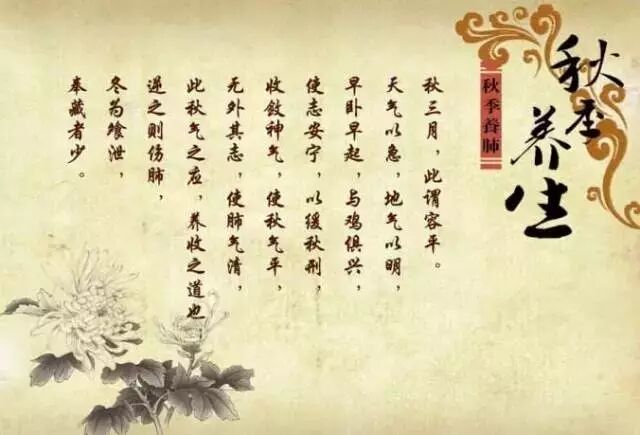 秋季养生
秋季養肺
秋三月，此谓容平。
天气以急，地气以明，
早卧早起，与鸡俱兴，
使志安宁，以缓秋刑，
收敛神气，使秋气平，
无外其志，使肺气清，
此秋气之应，养收之道也
逆之则伤肺，
冬为飧泄，
奉藏者少。